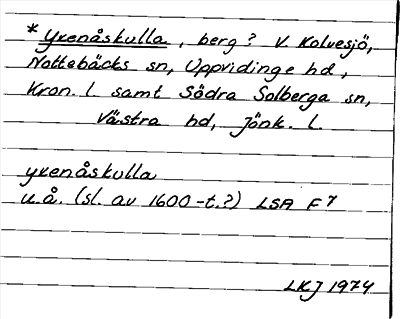 *Yxenåskulla, berg? V. Kolvesjö,
Nottebäcks sn, Uppvidinge hd,
Kron. l samt Södra Solberga sn,
Västra hd, Jönk. l.
yxenåskulla
u.å. (sl. av 1600-t.?) LSA F7
LKJ 1974